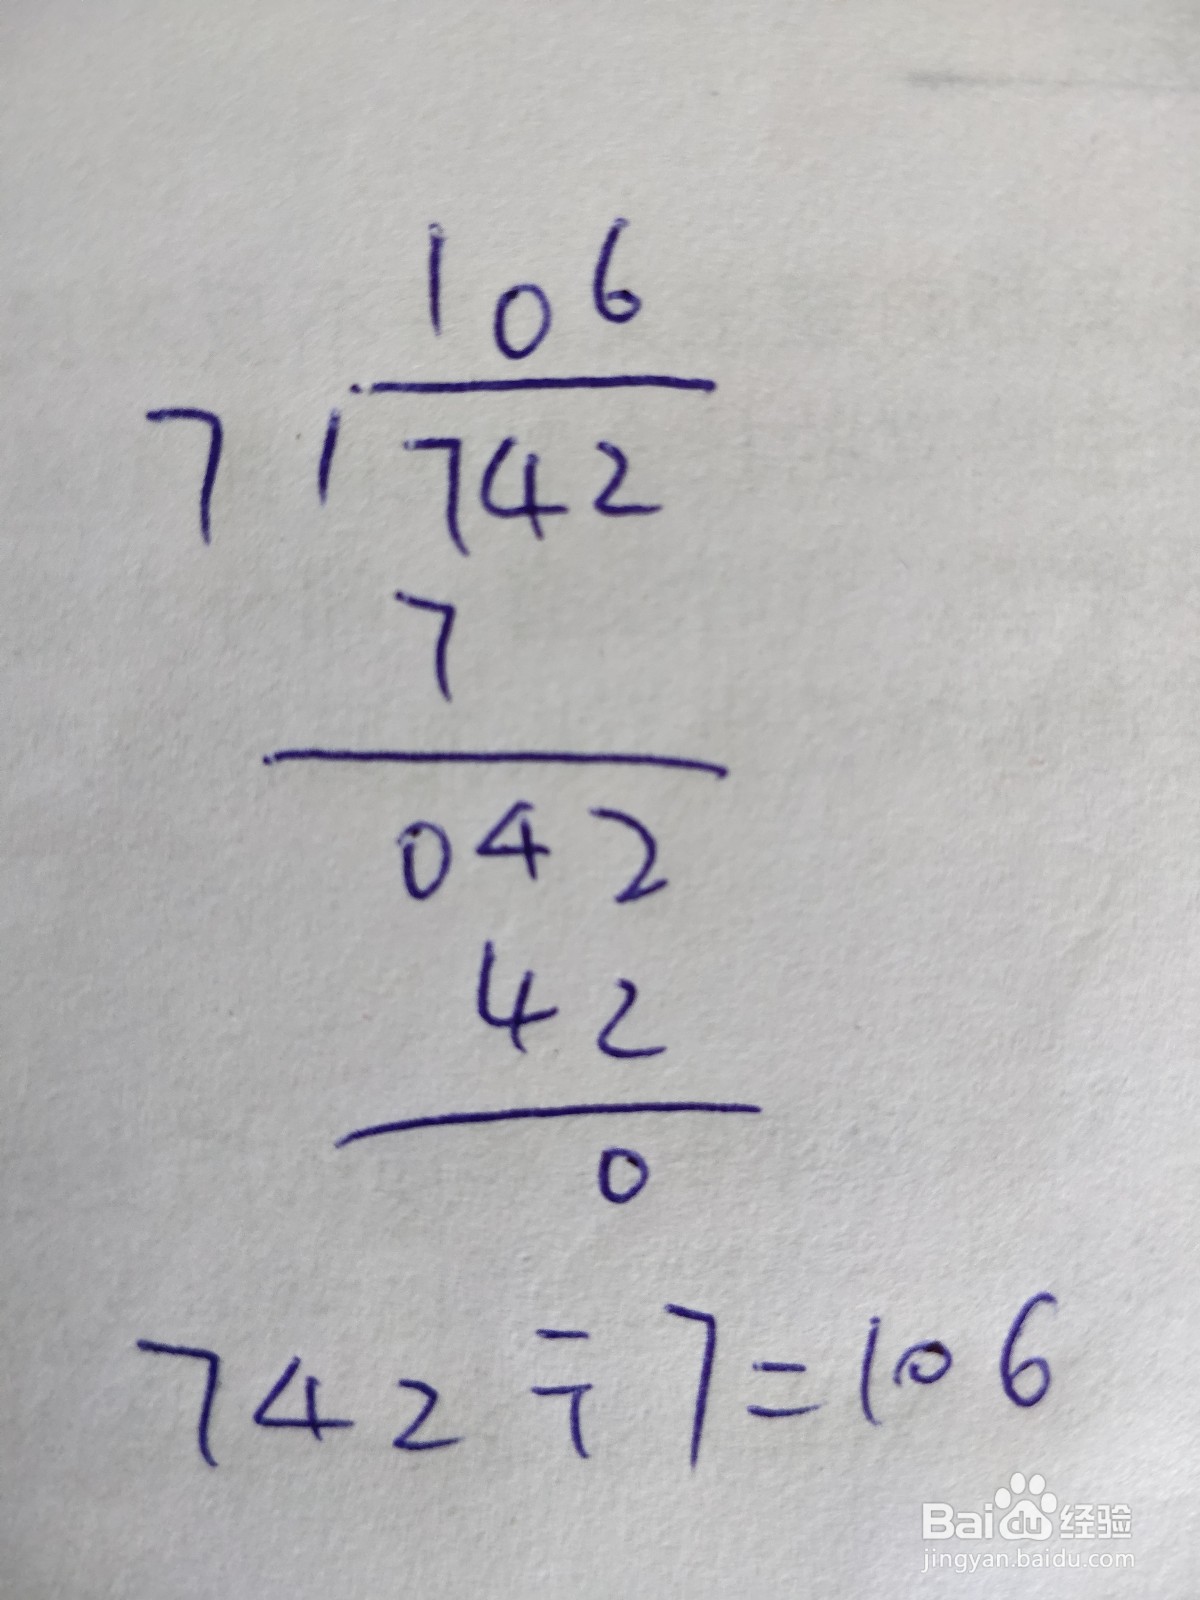 106
7 1 742
7
042
42
0
742÷7=106
Baidu经验
jingyan.baidu.com